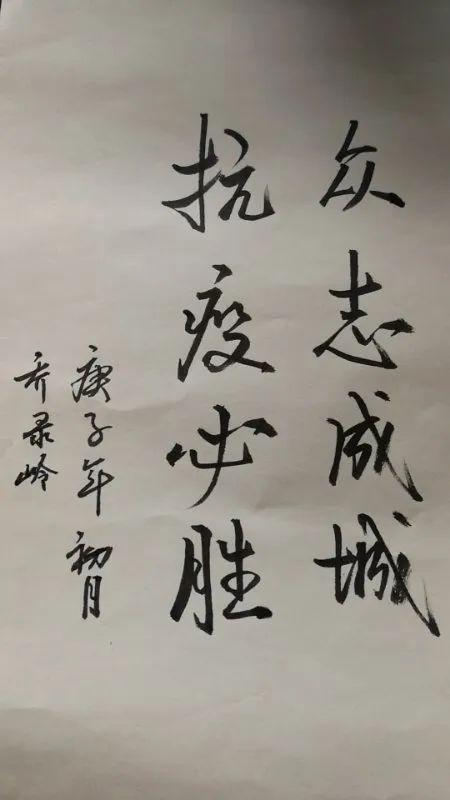 众志成城
抗疫必胜
庚子年初月
乔录岭